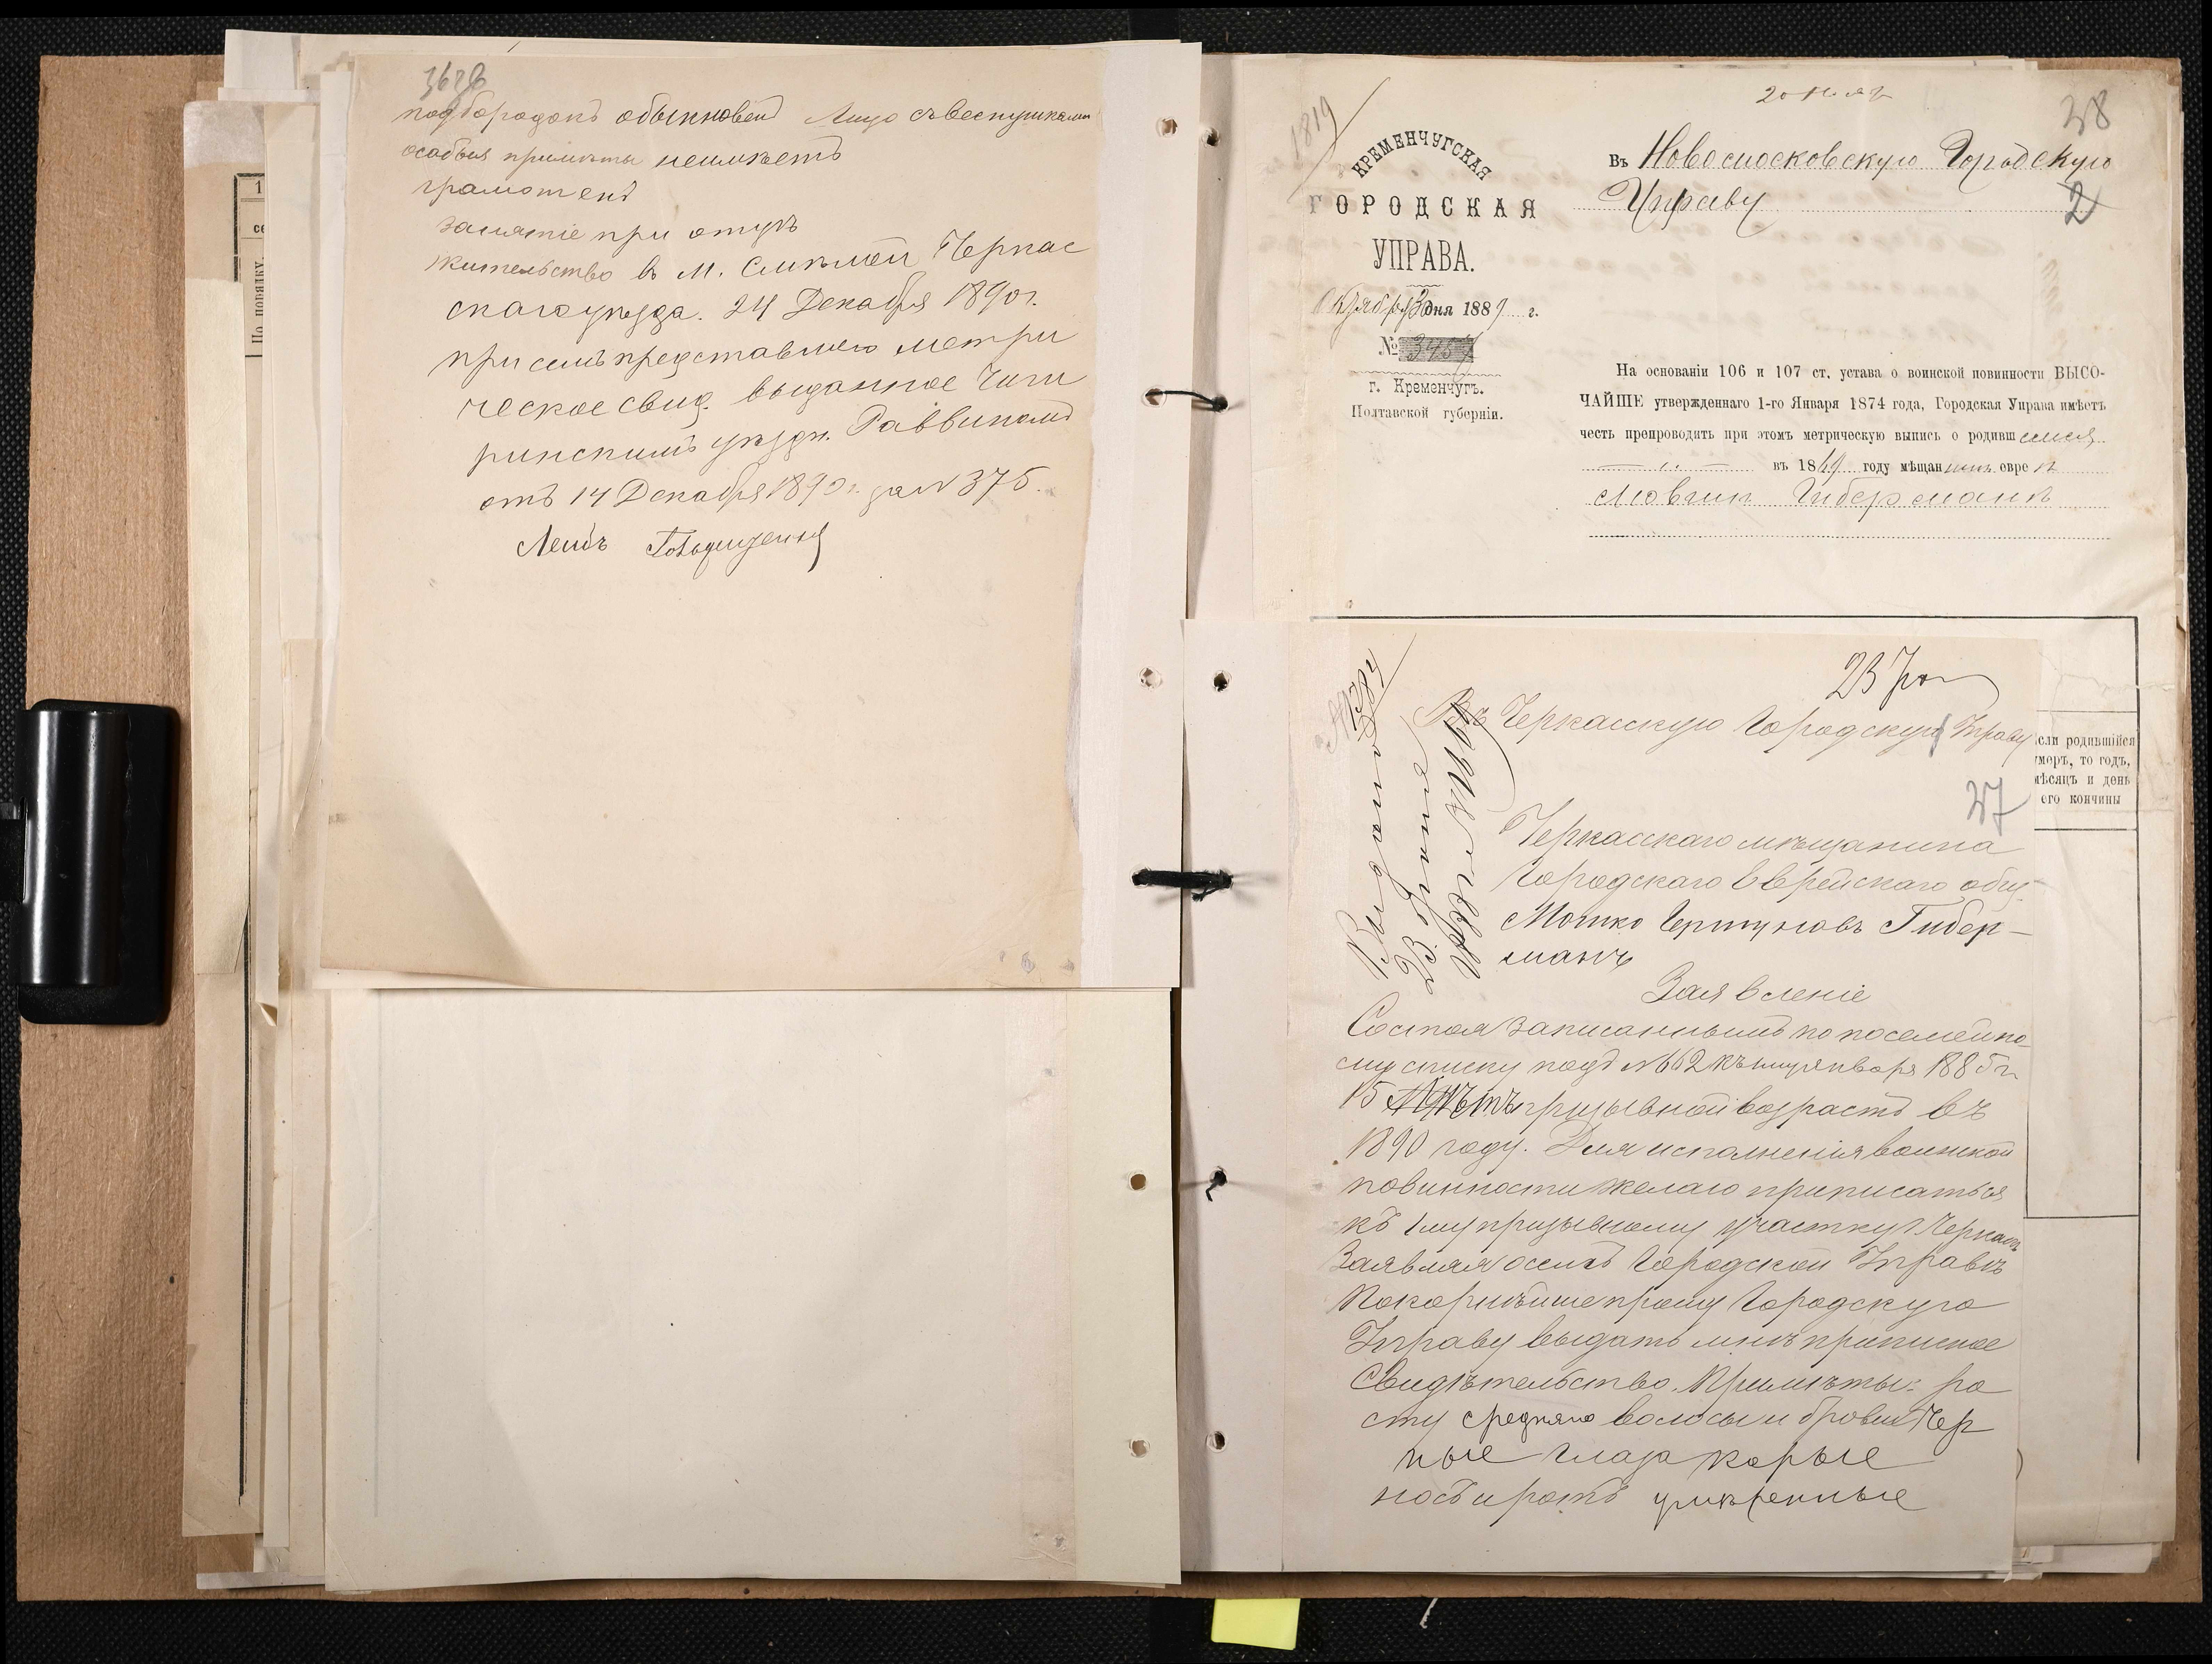 подбородокъ обыкновен Лицо съ веснушками
особыя примѣты неимѣетъ
грамотенъ
занятіе при отцѣ
жительство въ м. Смѣлой Черкас
скаго уѣзда. 24 Декабря 1890 г.
при семъ представляю метри
ческое свид. выданное Чиги
ринскимъ уѣздн. Раввиномъ
отъ 14 Декабря 1890 г. за № 375.
Лейбъ
38
1819
КРЕМЕНЧУГСКАЯ
ГОРОДСКАЯ
УПРАВА.
Октября дня 1889 г.
№ 3457
г. Кременчугъ.
Полтавской губерніи.
Въ Новомосковскую Городскую
Управу
2
На основаніи 106 и 107 ст. устава о воинской повинности ВЫСО-
ЧАЙШЕ утвержденнаго 1-го Января 1874 года, Городская Управа имѣетъ
честь препроводить при этомъ метрическую выпись о родившемся
въ 1869 году мѣщанинѣ евреѣ
Мовшѣ Гиберманѣ
если родившійся
умеръ, то годъ,
мѣсяцъ и день
его кончины
Въ Черкасскую Городскую Управу
37
Черкасскаго мѣщанина
Городскаго Еврейскаго общ.
Мошко Герту новъ Гибер-
манъ
Заявленіе
Состоя записаннымъ по посемейно-
му списку подъ № 662 къ 1му января 1885 г.
15 лѣтъ призывной возрастъ въ
1890 году. Для исполненія воинской
повинности желаю приписаться
къ 1му призывному участку Черкас
Заявляя о семъ Городской Управѣ
Покорнѣйше прошу Городскую
Управу выдать мнѣ приписное
Свидѣтельство. Примѣты: ро
сту средняго волосы и брови Чер
ные глаза карые
носъ и ротъ умѣренные
Выдано
23 Іюня
1
По порядку.